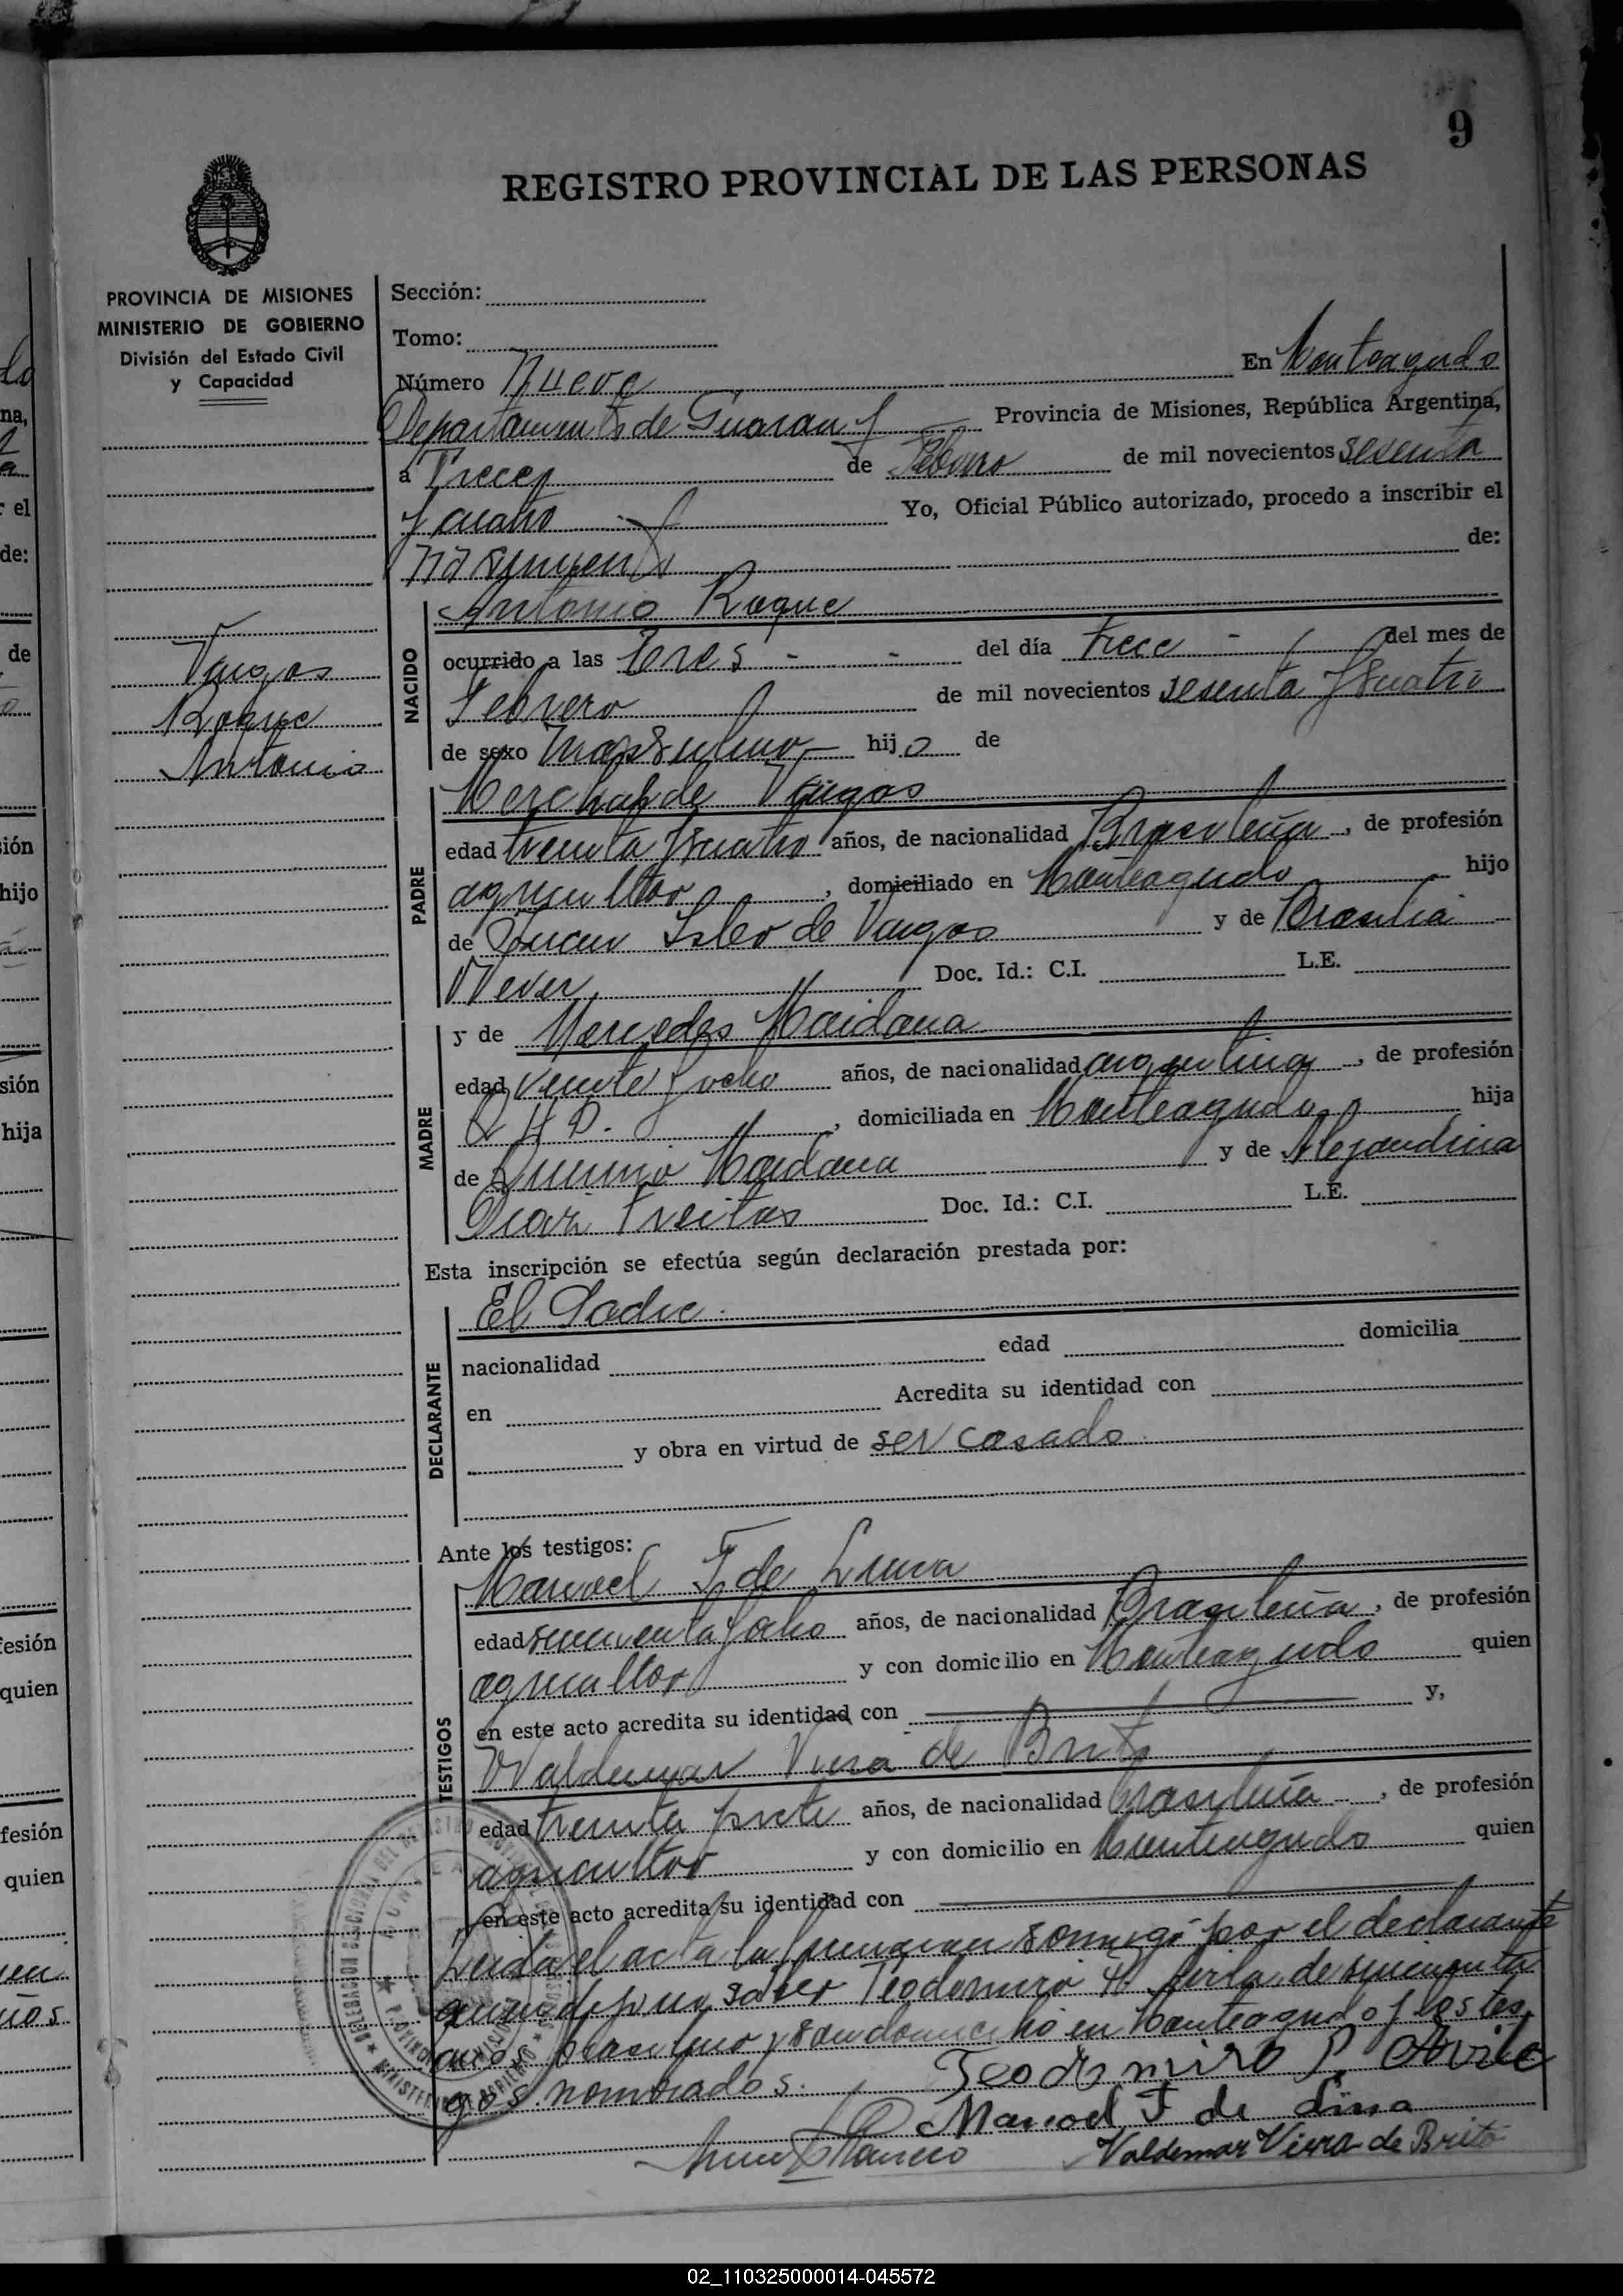 9
REGISTRO PROVINCIAL DE LAS PERSONAS
PROVINCIA DE MISIONES
MINISTERIO DE GOBIERNO
División del Estado Civil
y Capacidad
Vargas
Roque
Antonio
Sección:
Tomo:
Número Nueve En Monteagudo
Departamento de Guaraní Provincia de Misiones, República Argentina,
a Trece de Febrero de mil novecientos sesenta
y cuatro Yo, Oficial Público autorizado, procedo a inscribir el
nasimiento de:
NACIDO
Antonio Roque
ocurrido a las tres - - del día trece - del mes de
Febrero de mil novecientos sesenta y cuatro
de sexo massulino hijo de
PADRE
de Vargas
edad treinta y cuatro años, de nacionalidad Brasileña, de profesión
agricultor, domiciliado en Monteagudo hijo
de de Vargas y de Brasilia
Doc. Id.: C.I. L.E.
MADRE
y de Mercedes Maidana
edad veinte y ocho años, de nacionalidad argentina, de profesión
Q H D. , domiciliada en Monteagudo hija
de Maidana y de Alejandrina
Freitas Doc. Id.: C.I. L.E.
Esta inscripción se efectúa según declaración prestada por:
DECLARANTE
El Padre
nacionalidad edad domicilia
en Acredita su identidad con
y obra en virtud de ser casado
Ante los testigos:
TESTIGOS
Manoel F. de Lima
edad sincuenta y ocho años, de nacionalidad Brasileña, de profesión
agricultor y con domicilio en Monteagudo quien
en este acto acredita su identidad con y,
Waldemar Viera de Brito
edad treinta y siete años, de nacionalidad brasileña, de profesión
agricultor y con domicilio en Monteagudo quien
en este acto acredita su identidad con
Leida el acta la por el declarante
saber Teodomiro de sincuenta
años brasilero y con domicilio en Monteagudo y los testi
gos nombrados.
Teodomiro P. Avila
Manoel F de Lima
Valdemar Vieira de Brito
02_110325000014-045572